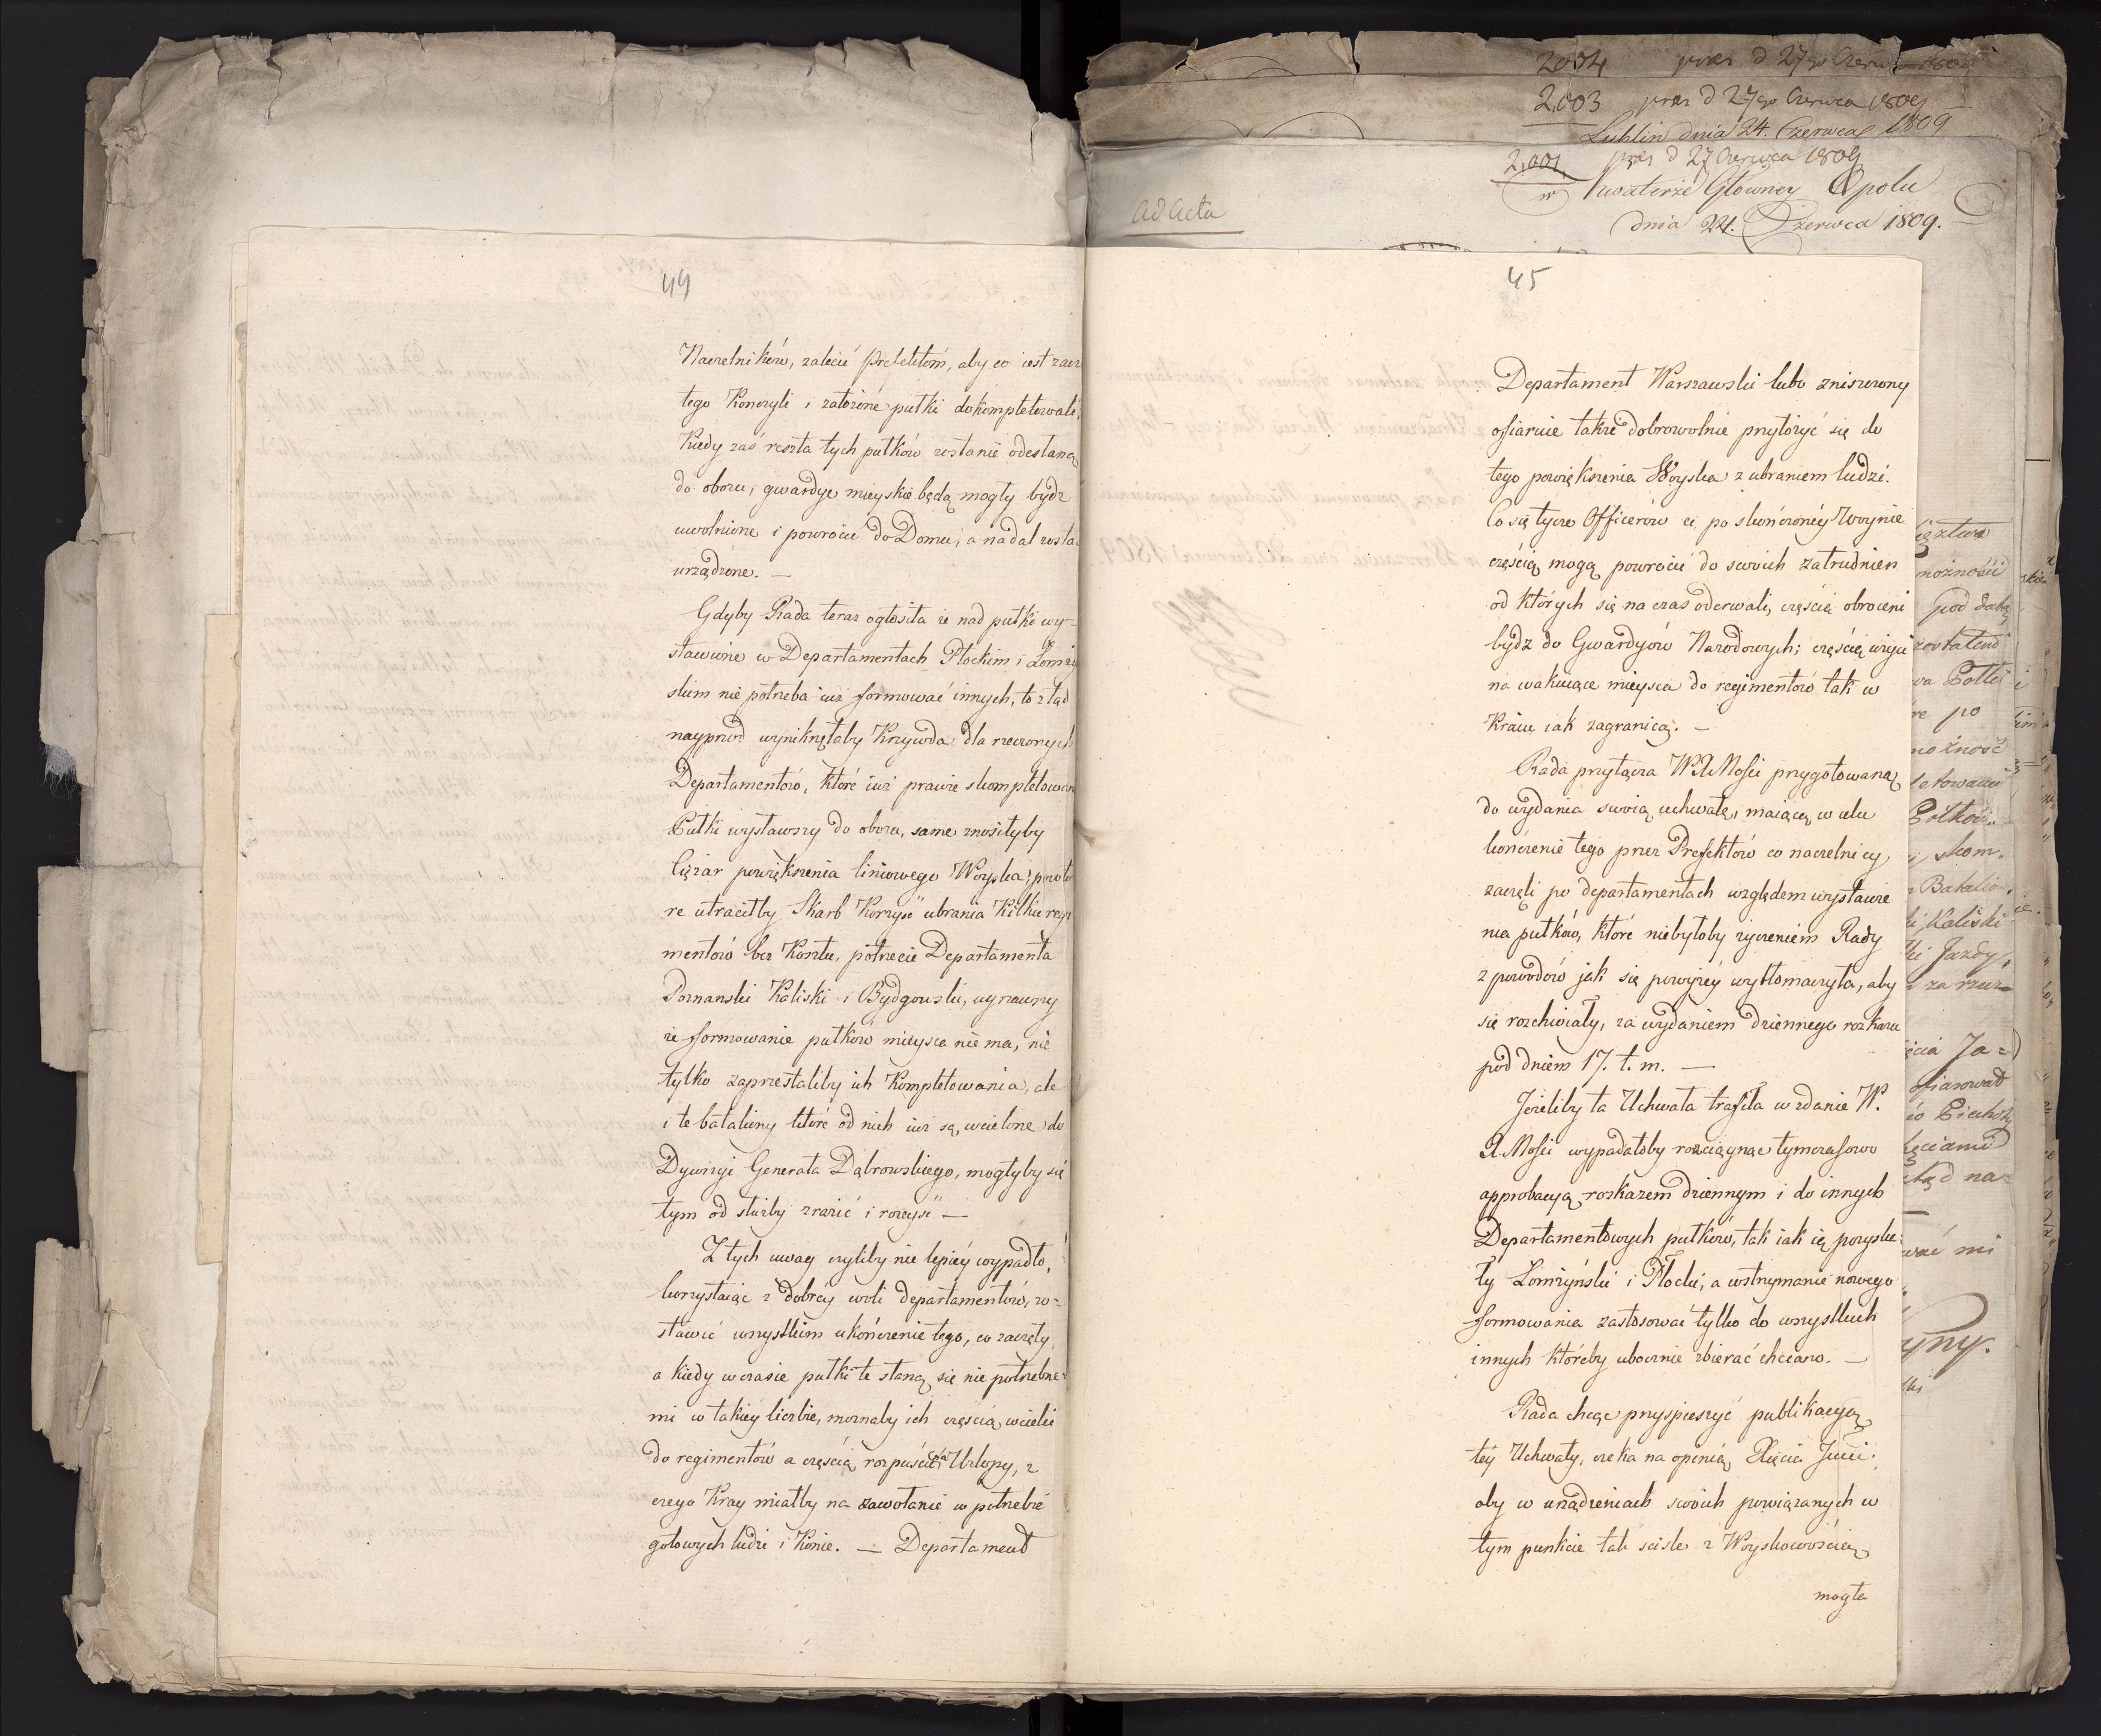 44
Naczelników, zalecić Prefektom, aby co iest zaczę
tego kończyli i założone pułki dokompletowali,
kiedy zaś reszta tych pułków zostanie odesłaną
do obozu, gwardye mieyskie będą mogły bydz
uwolnione i powrócić do Domu, a nadal zosta
urządzone. —
Gdyby Rada teraz ogłosiła że nad pułki wy-
stawione w Departamentach Płockim i Łomży
skim nie potrzeba iuż formować innych, to ztąd
nayprzód wyniknęłaby krzywda dla rzeczonych
Departamentów, które iuż prawie skompletowan
Pułki wystawszy do obozu, same znosiłyby
Ciężar powiększenia liniowego Woyska; powto
re utraciłby Skarb korzyść ubrania kilku regi
mentów bez kosztu, potrzecie Departamenta
Poznanski Kaliski i Bydgowski, uyrzawszy
że formowanie pułków mieysca nie ma, nie
tylko zaprzestaliby ich kompletowania, ale
i te bataliony które od nich iuż są wcielone do
Dywizyi Generała Dąbrowskiego, mogłyby się
tym od służby zrazić i rozeyść —
Z tych uwag czyliby nie lepiéy wypadło,
korzystaiąc z dobréy woli departamentów, zo=
stawić wszystkim ukończenie tego, co zaczęły,
a kiedy w czasie pułki te staną się nie potrzebne-
mi w takiey liczbie, możnaby ich częścią wcielić
do regimentów a częścią rozpuścić na Urlopy, z
czego kray miałby na zawołanie w potrzebie
gotowych ludzi i konie. — Departament
2004 prez d 27go Czerwca 1809
2,003 prez d 27go Czerwca 1809
Lublin dnia 24. Czerwca 1809
2,001. prez d 27 Czerwca 1809
w Kwaterze Główney Opolu
dnia 24. Czerwca 1809.
Ad Acta
45
Departament Warszawski lubo zniszczony
ofiaruie także dobrowolnie przyłożyć się do
tego powiększenia Woyska z ubraniem ludzi.
Co się tycze Officerów ci po skończonéy Woynie
częścią mogą powrócić do swoich zatrudnień
od których się na czas oderwali, częścią obróceni
bydz do Gwardyów Narodowych; częścią wziąć
na wakuiące mieysca do regimentów tak w
Kraiu iak zagranicą. —
Rada przyłącza W. X Mości przygotowaną
do wydania swoią uchwałę, maiącą w celu
kończenie tego przez Prefektów co naczelnicy
zaczęli po departamentach względem wystawie
nia pułków, które niebyłoby życzeniem Rady
z powodów jak się powyżey wytłomaczyła, aby
się rozchwiały, za wydaniem dziennego rozkazu
pod dniem 17. t. m. —
Jeżeliby ta Uchwała trafiła w zdanie W.
X. Mości wypadałoby rozciągnąć tymczasowo
approbacyą rozkazem dziennym i do innych
Departamentowych pułków, tak iak ią pozyska=
ły Łomżyński i Płocki, a wstrzymanie nowego
formowania zastosować tylko do wszystkich
innych któreby ubocznie zbierać chciano. —
Rada chcąc przyspieszyć publikacyą
téy Uchwały, czeka na opinią Xięcia Jmci.
aby w urządzeniach swoich powiązanych w
tym punkcie tak scisle z Woyskowością
mogła
możności
pod datą
po
możność
Pułków
kom-
Batalio
Kaliski
Jazdy,
za rzecz=
ęcia Ja=
ofiarował
tąd na=
mi